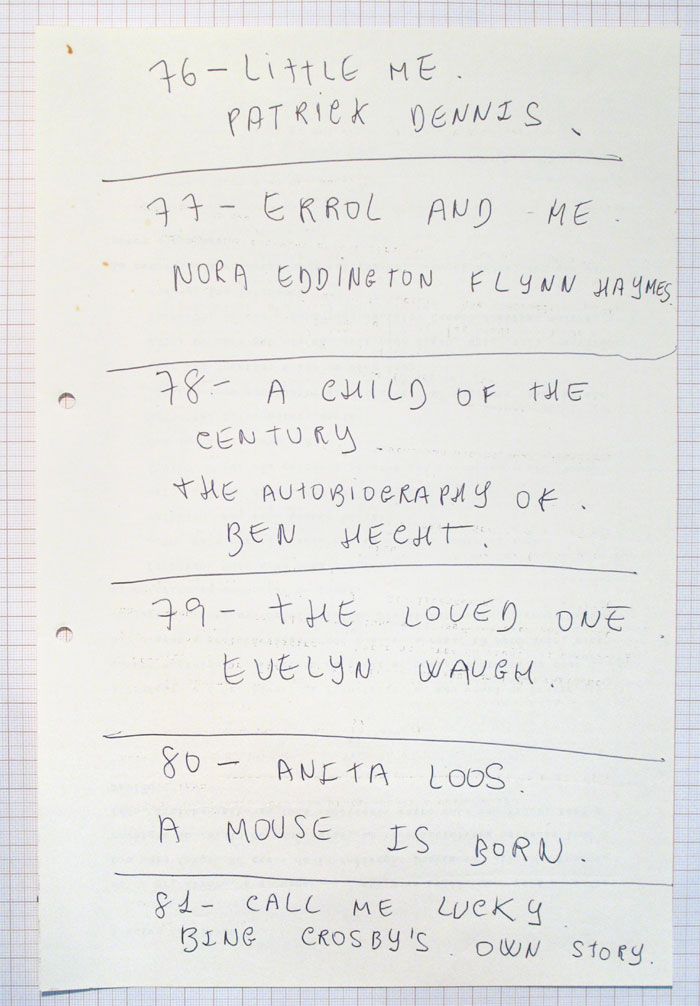 76 - LITTLE ME.
PATRICK DENNIS.
77 - ERROL AND ME.
NORA EDDINGTON FLYNN HAYMES.
78 - A CHILD OF THE
CENTURY.
THE AUTOBIOGRAPHY OF.
BEN HECHT.
79 - THE LOVED ONE.
EVELYN WAUGH.
80 - ANITA LOOS.
A MOUSE IS BORN.
81 - CALL ME LUCKY.
BING CROSBY'S OWN STORY.